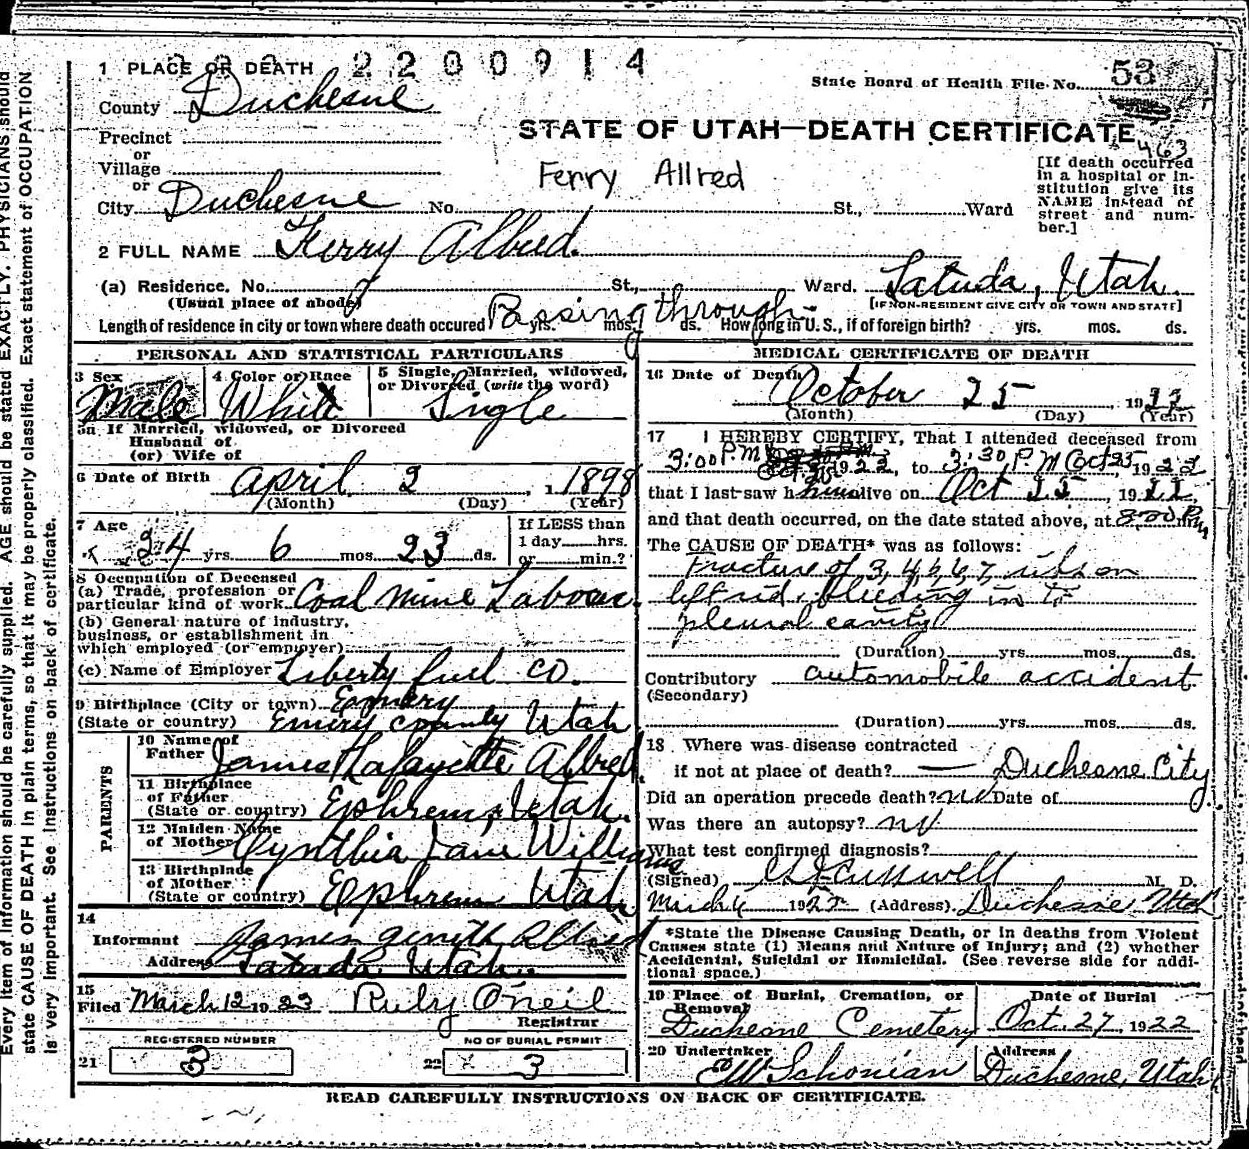 1 PLACE OF DEATH 2200914
State Board of Health File No. 53
County Duchesne
STATE OF UTAH—DEATH CERTIFICATE
463
Precinct
or
Village
or
Ferry Allred
[If death occurred in a hospital or institution give its NAME instead of street and number.]
City Duchesne No. St., Ward
2 FULL NAME Ferry Allred.
(a) Residence, No. St., Ward, Latuda, Utah.
(Usual place of abode) [IF NON-RESIDENT GIVE CITY OR TOWN AND STATE]
Length of residence in city or town where death occured Passing through yrs. mos. ds. How long in U. S., if of foreign birth? yrs. mos. ds.
PERSONAL AND STATISTICAL PARTICULARS
3 Sex Male
4 Color or Race White
5 Single, Married, widowed, or Divorced (write the word) Single
5a If Married, widowed, or Divorced
Husband of
(or) Wife of
6 Date of Birth April 2, 1898
(Month) (Day) (Year)
7 Age 24 yrs 6 mos. 23 ds.
If LESS than 1 day hrs. or min.?
8 Occupation of Deceased
(a) Trade, profession or particular kind of work Coal mine Laborer.
(b) General nature of industry, business, or establishment in which employed (or employer)
(c) Name of Employer Liberty fuel co.
9 Birthplace (City or town) Emery
(State or country) Emery county Utah
PARENTS
10 Name of Father James Lafayette Allred
11 Birthplace of Father (State or country) Ephrem, Utah.
12 Maiden Name of Mother Cynthia Jane Williams
13 Birthplace of Mother (State or country) Ephrem Utah
14
Informant James Zenith Allred
Address Latuda, Utah.
15
Filed March 12 1923 Ruby O'neil
Registrar
REGISTERED NUMBER
21 3
NO OF BURIAL PERMIT
22 3
MEDICAL CERTIFICATE OF DEATH
16 Date of Death October 25, 1922
(Month) (Day) (Year)
17 I HEREBY CERTIFY, That I attended deceased from
3:00 P.M. 1922, to 3:30 P.M Oct 25 1922
that I last saw him alive on Oct 25, 1922,
and that death occurred, on the date stated above, at
The CAUSE OF DEATH* was as follows:
Fracture of 3, 4, 5, 6, 7, ribs on
left side, bleeding in to
pleural cavity
(Duration) yrs. mos. ds.
Contributory automobile accident
(Secondary)
(Duration) yrs. mos. ds.
18 Where was disease contracted
if not at place of death? Duchesne City
Did an operation precede death? no Date of
Was there an autopsy? no
What test confirmed diagnosis?
(Signed) M. D.
March 192 (Address) Duchesne, Utah
*State the Disease Causing Death, or in deaths from Violent
Causes state (1) Means and Nature of Injury; and (2) whether
Accidental, Suicidal or Homicidal. (See reverse side for addi-
tional space.)
19 Place of Burial, Cremation, or Removal
Duchesne Cemetery
Date of Burial
Oct. 27, 1922
20 Undertaker
EW Schonian
Address
Duchesne, Utah
READ CAREFULLY INSTRUCTIONS ON BACK OF CERTIFICATE.
Every item of information should be carefully supplied. AGE should be stated EXACTLY. PHYSICIANS should
state CAUSE OF DEATH in plain terms, so that it may be properly classified. Exact statement of OCCUPATION
is very important. See instructions on back of certificate.